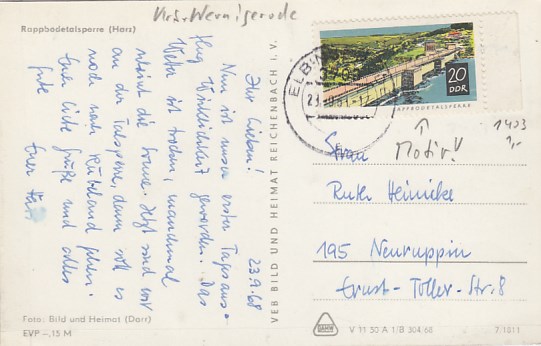 Rappbodetalsperre (Harz)
Krs. Wernigerode
23.9.68
Ihr Lieben!
Nun ist unser erster Tagesaus-
flug Wirklichkeit geworden. Das
Wetter ist trocken, manchmal
scheint die Sonne. Jetzt sind wir
an der Talsperre, dann soll es
noch nach Rübeland gehen.
Euer liebe Grüße und alles
Gute
Euer
Foto: Bild und Heimat (Darr)
EVP –,15 M
VEB BILD UND HEIMAT REICHENBACH I. V.
ELBIN
20
DDR
RAPPBODETALSPERRE
↑
Motiv!
1403
1,-
Frau
Ruth Heinicke
195 Neuruppin
Ernst-Toller-Str. 8
V 11 50 A 1/B 304/68
7/1011